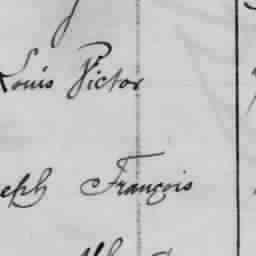 Louis Victor
eph François